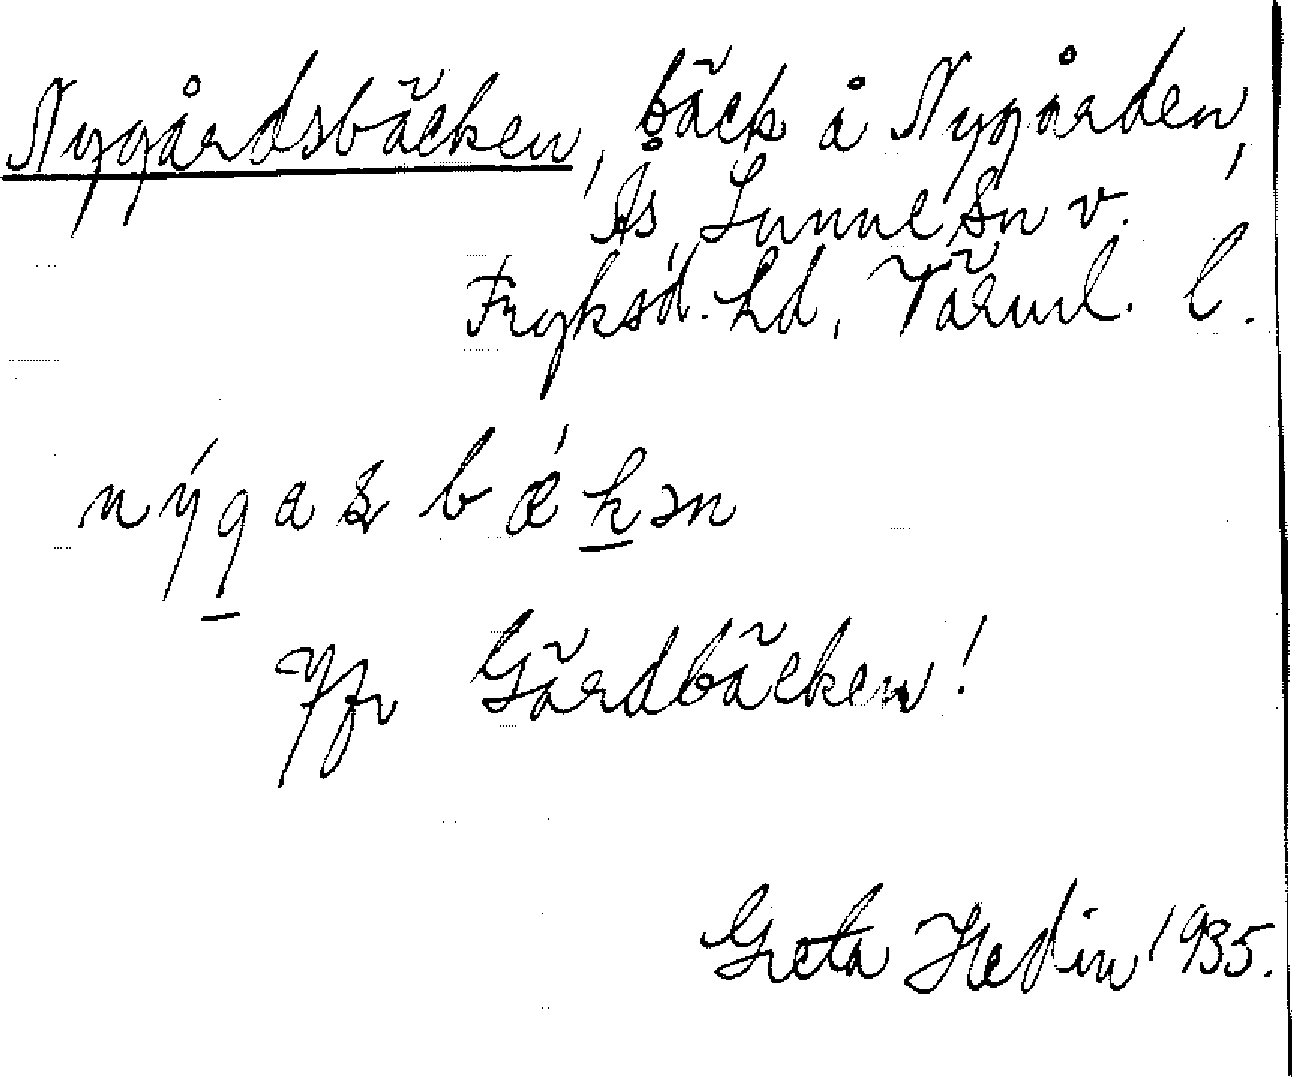 Nygårdsbäcken, bäck å Nygården,
Ås, Sunne sn v.
Fryksd. hd, Värml. l.
nýgas bækən
Jfr Gårdbäcken!
Greta Hedin 1935.